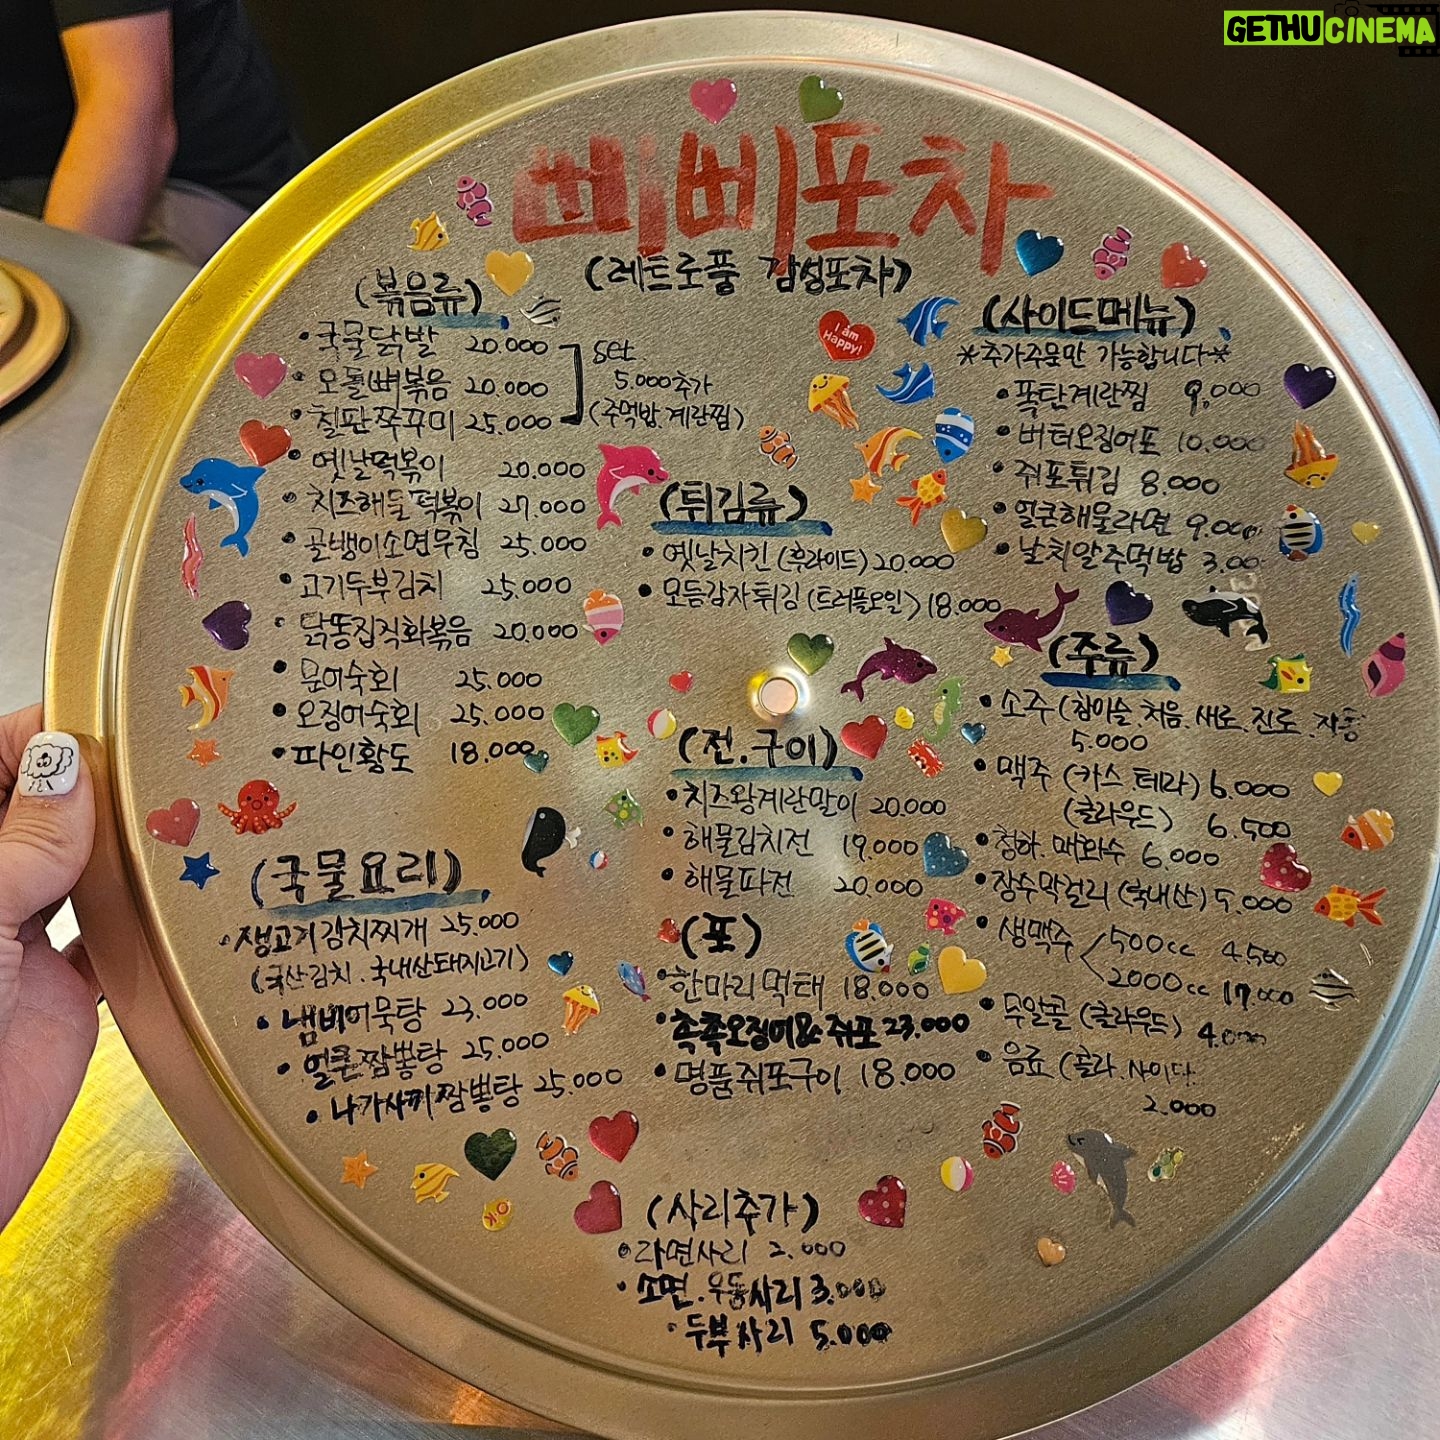 GETHUCINEMA
삐삐포차
(레트로풍 감성포차)
(볶음류)
• 국물닭발 20.000
• 오돌뼈볶음 20.000
• 칠판쭈꾸미 25.000
set
5.000추가
(주먹밥.계란찜)
• 옛날떡볶이 20.000
• 치즈해물떡볶이 27.000
• 골뱅이소면무침 25.000
• 고기두부김치 25.000
• 닭똥집직화볶음 20.000
• 문어숙회 25.000
• 오징어숙회 25.000
• 파인황도 18.000
(국물요리)
• 생고기김치찌개 25.000
(국산김치.국내산돼지고기)
• 냄비어묵탕 23.000
• 얼큰짬뽕탕 25.000
• 나가사끼짬뽕탕 25.000
(튀김류)
• 옛날치킨 (후라이드) 20.000
• 모듬감자튀김 (트러플오일) 18.000
(전.구이)
• 치즈왕계란말이 20.000
• 해물김치전 19.000
• 해물파전 20.000
(포)
• 한마리먹태 18.000
• 촉촉오징어& 쥐포 23.000
• 명품쥐포구이 18.000
I am Happy!
(사이드메뉴)
*추가주문만 가능합니다*
• 폭탄계란찜 9,000
• 버터오징어포 10.000
• 쥐포튀김 8.000
• 얼큰해물라면 9.000
• 날치알주먹밥 3.00
(주류)
• 소주 (참이슬.처음.새로.진로.자몽
5.000
• 맥주 (카스.테라) 6.000
(클라우드) 6.500
• 청하.매화수 6.000
• 장수막걸리 (국내산) 5.000
• 생맥주 500cc 4.500
2000cc 17.000
• 무알콜 (클라우드) 4.000
• 음료 (콜라.사이다
2.000
OK
(사리추가)
• 라면사리 2.000
• 소면.우동사리 3.000
• 두부사리 5.000